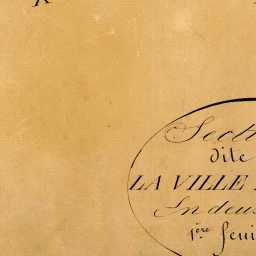 Secti
dite
LA VILLE
En deux
1ère feui